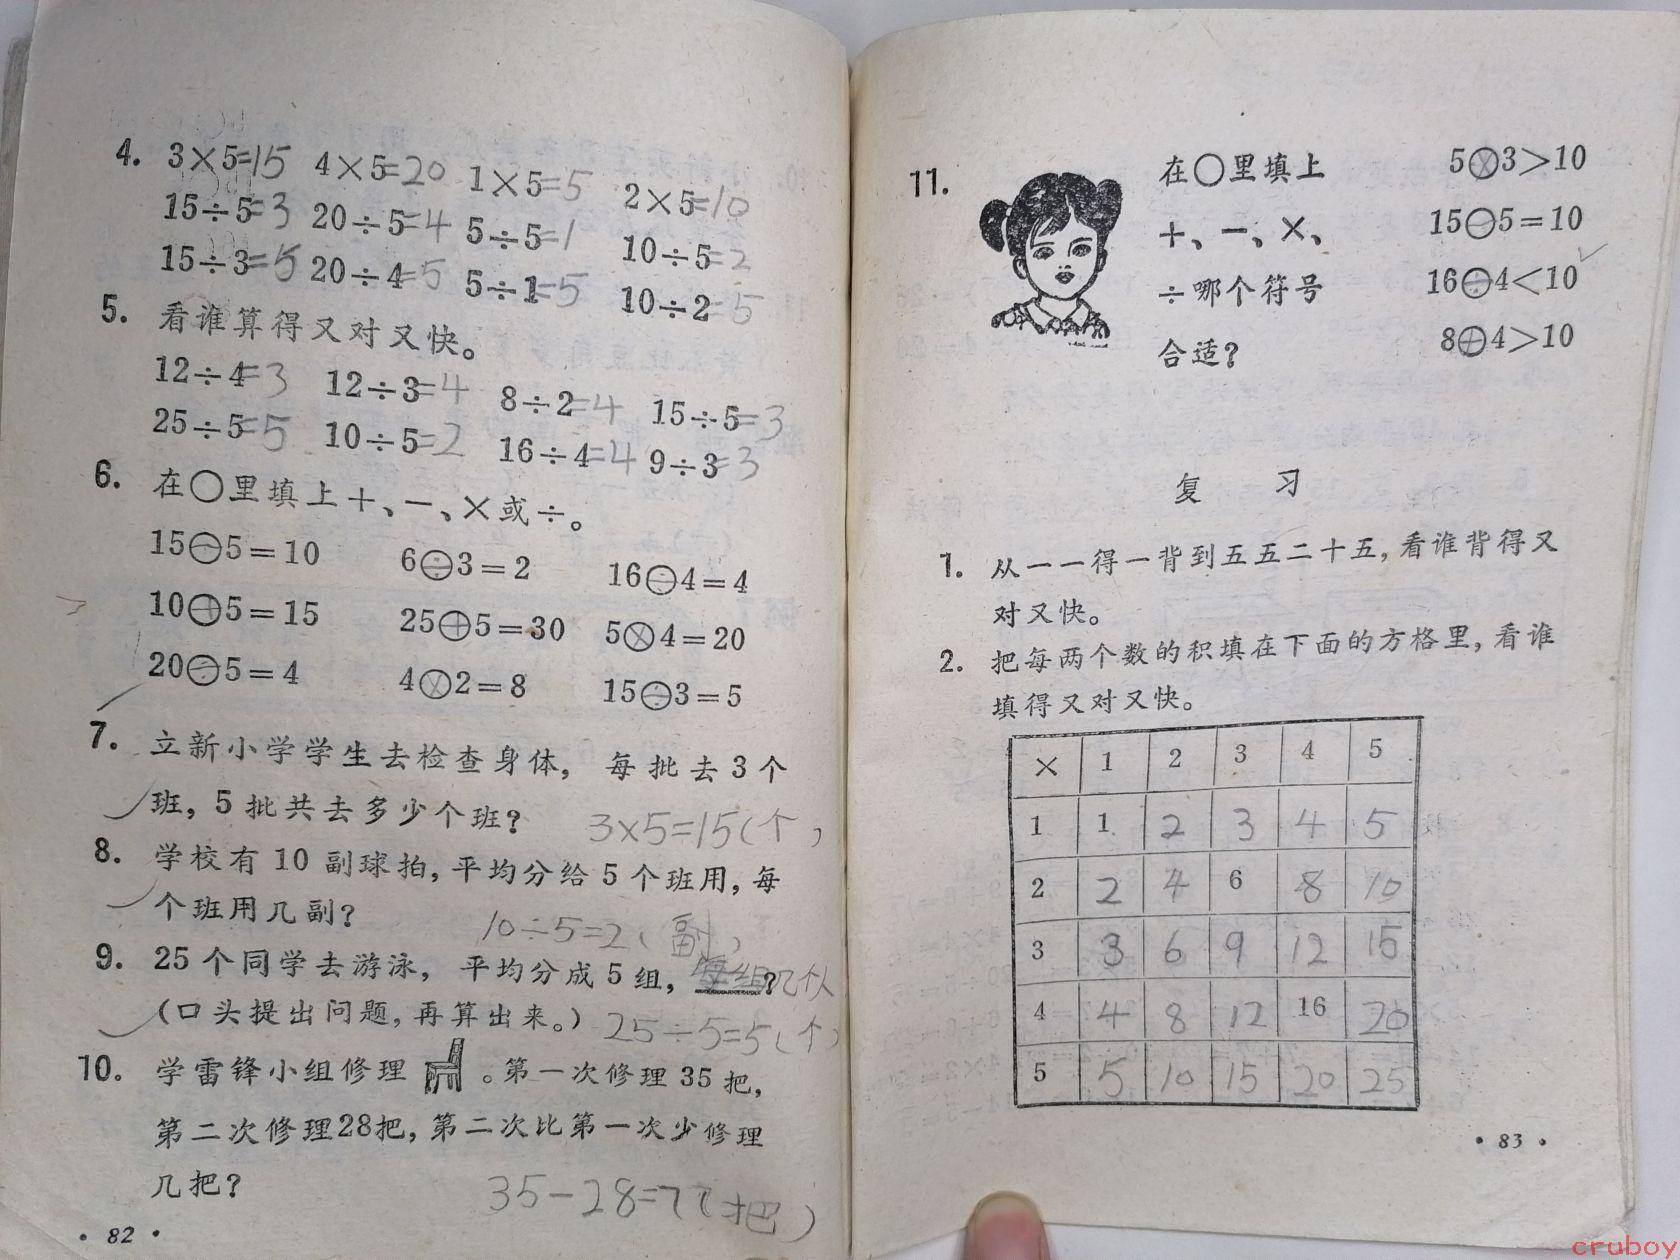 4. 3×5=15 4×5=20 1×5=5 2×5=10
15÷5=3 20÷5=4 5÷5=1 10÷5=2
15÷3=5 20÷4=5 5÷1=5 10÷2=5
5. 看谁算得又对又快。
12÷4=3 12÷3=4 8÷2=4 15÷5=3
25÷5=5 10÷5=2 16÷4=4 9÷3=3
6. 在○里填上+、-、×或÷。
15-5=10 6÷3=2 16÷4=4
10+5=15 25+5=30 5×4=20
20÷5=4 4×2=8 15÷3=5
7. 立新小学学生去检查身体, 每批去3个
班, 5批共去多少个班?
3×5=15(个)
8. 学校有10副球拍, 平均分给5个班用, 每
个班用几副?
10÷5=2(副)
9. 25个同学去游泳, 平均分成5组, 每组?几个人
(口头提出问题, 再算出来。) 25÷5=5(个)
10. 学雷锋小组修理 。第一次修理35把,
第二次修理28把, 第二次比第一次少修理
几把?
35-28=7(把)
· 82 ·
11. 在○里填上 5×3>10
+、-、×、 15-5=10
÷哪个符号 16÷4<10
合适? 8+4>10
复 习
1. 从一一得一背到五五二十五, 看谁背得又
对又快。
2. 把每两个数的积填在下面的方格里, 看谁
填得又对又快。
× 1 2 3 4 5
1 1 2 3 4 5
2 2 4 6 8 10
3 3 6 9 12 15
4 4 8 12 16 20
5 5 10 15 20 25
· 83 ·
cruboy